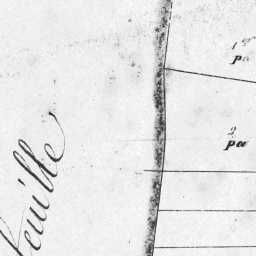 feuille
1er
pa
2
pa